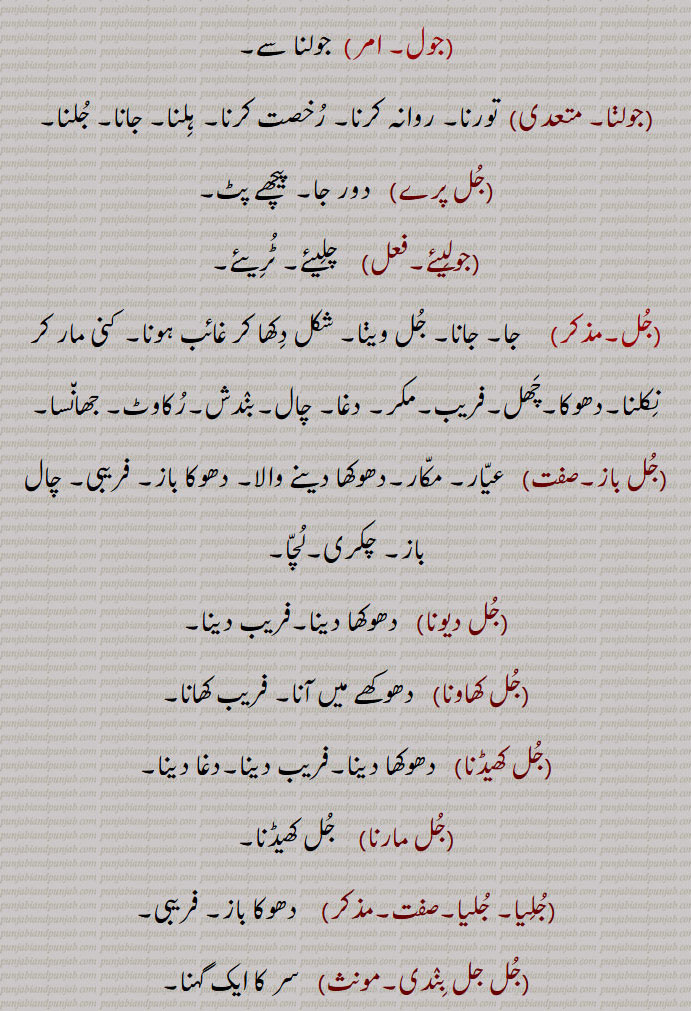 (جول۔ امر) جولنا سے۔
(جولݨا۔ متعدی) تورنا۔ روانہ کرنا۔ رُخصت کرنا۔ ہِلنا۔ جانا۔ جُلنا۔
(جُل پرے) دور جا۔ پیچھے ہٹ۔
(جولِیئے۔فعل) چلِیئے۔ ٹُرِیئے۔
(جُل۔مذکر) جا۔ جانا۔ جُل وینݨا۔ شکل دِکھا کر غائب ہونا۔ کنی مار کر
نِکلنا۔دھوکا۔چَھل۔فریب۔مکر۔ دغا۔ چال۔بنْدش۔رُکاوٹ۔ جھانّسا۔
(جُل باز۔صفت) عیّار۔ مکّار۔دھوکھا دینے والا۔ دھوکا باز۔ فریبی۔ چال
باز۔ چکری۔لُچّا۔
(جُل دیونا) دھوکھا دینا۔فریب دینا۔
(جُل کھاونا) دھوکھے میں آنا۔ فریب کھانا۔
(جُل کھیڈنا) دھوکھا دینا۔فریب دینا۔دغا دینا۔
(جُل مارنا) جُل کھیڈنا۔
(جُلِیا۔ جُلیا۔صفت۔مذکر) دھوکا باز۔ فریبی۔
(جُل جل بِنْدی۔مونث) سر کا ایک گہنا۔